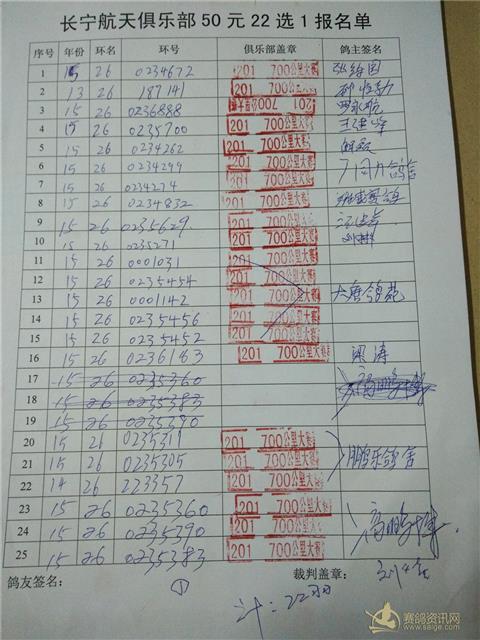 长宁航天俱乐部50元22选1报名单
序号 年份 环名 环号 俱乐部盖章 鸽主签名
1 15 26 0234672 201 700公里大赛
2 13 26 187141 201 700公里大赛
3 15 26 0236888 201 700公里大赛
4 15 26 0235700 201 700公里大赛
5 15 26 0234262 201 700公里大赛
6 15 26 0234299 201 700公里大赛
7 15 26 0234274 201 700公里大赛
8 15 26 0234832 201 700公里大赛
9 15 26 0235629 201 700公里大赛
10 15 26 0235271 201 700公里大赛
11 15 26 0001031 201 700公里大赛
12 15 26 0235454 201 700公里大赛
13 15 26 0001142 201 700公里大赛 大唐鸽苑
14 15 26 0235456 201 700公里大赛
15 15 26 0235452 201 700公里大赛
16 15 26 0236183 201 700公里大赛 梁涛
17 15 26 0235360
18 15 26 0235383
19 15 26 0235390
20 15 26 0235311 201 700公里大赛
21 15 26 0235305 201 700公里大赛 鹏乐鸽舍
22 14 26 223357 201 700公里大赛
23 15 26 0235360 201 700公里大赛
24 15 26 0235390 201 700公里大赛 高鹏博
25 15 26 0235383 201 700公里大赛
鸽友签名: ① 裁判盖章:
计:22羽
赛鸽资讯网
www.saige.com